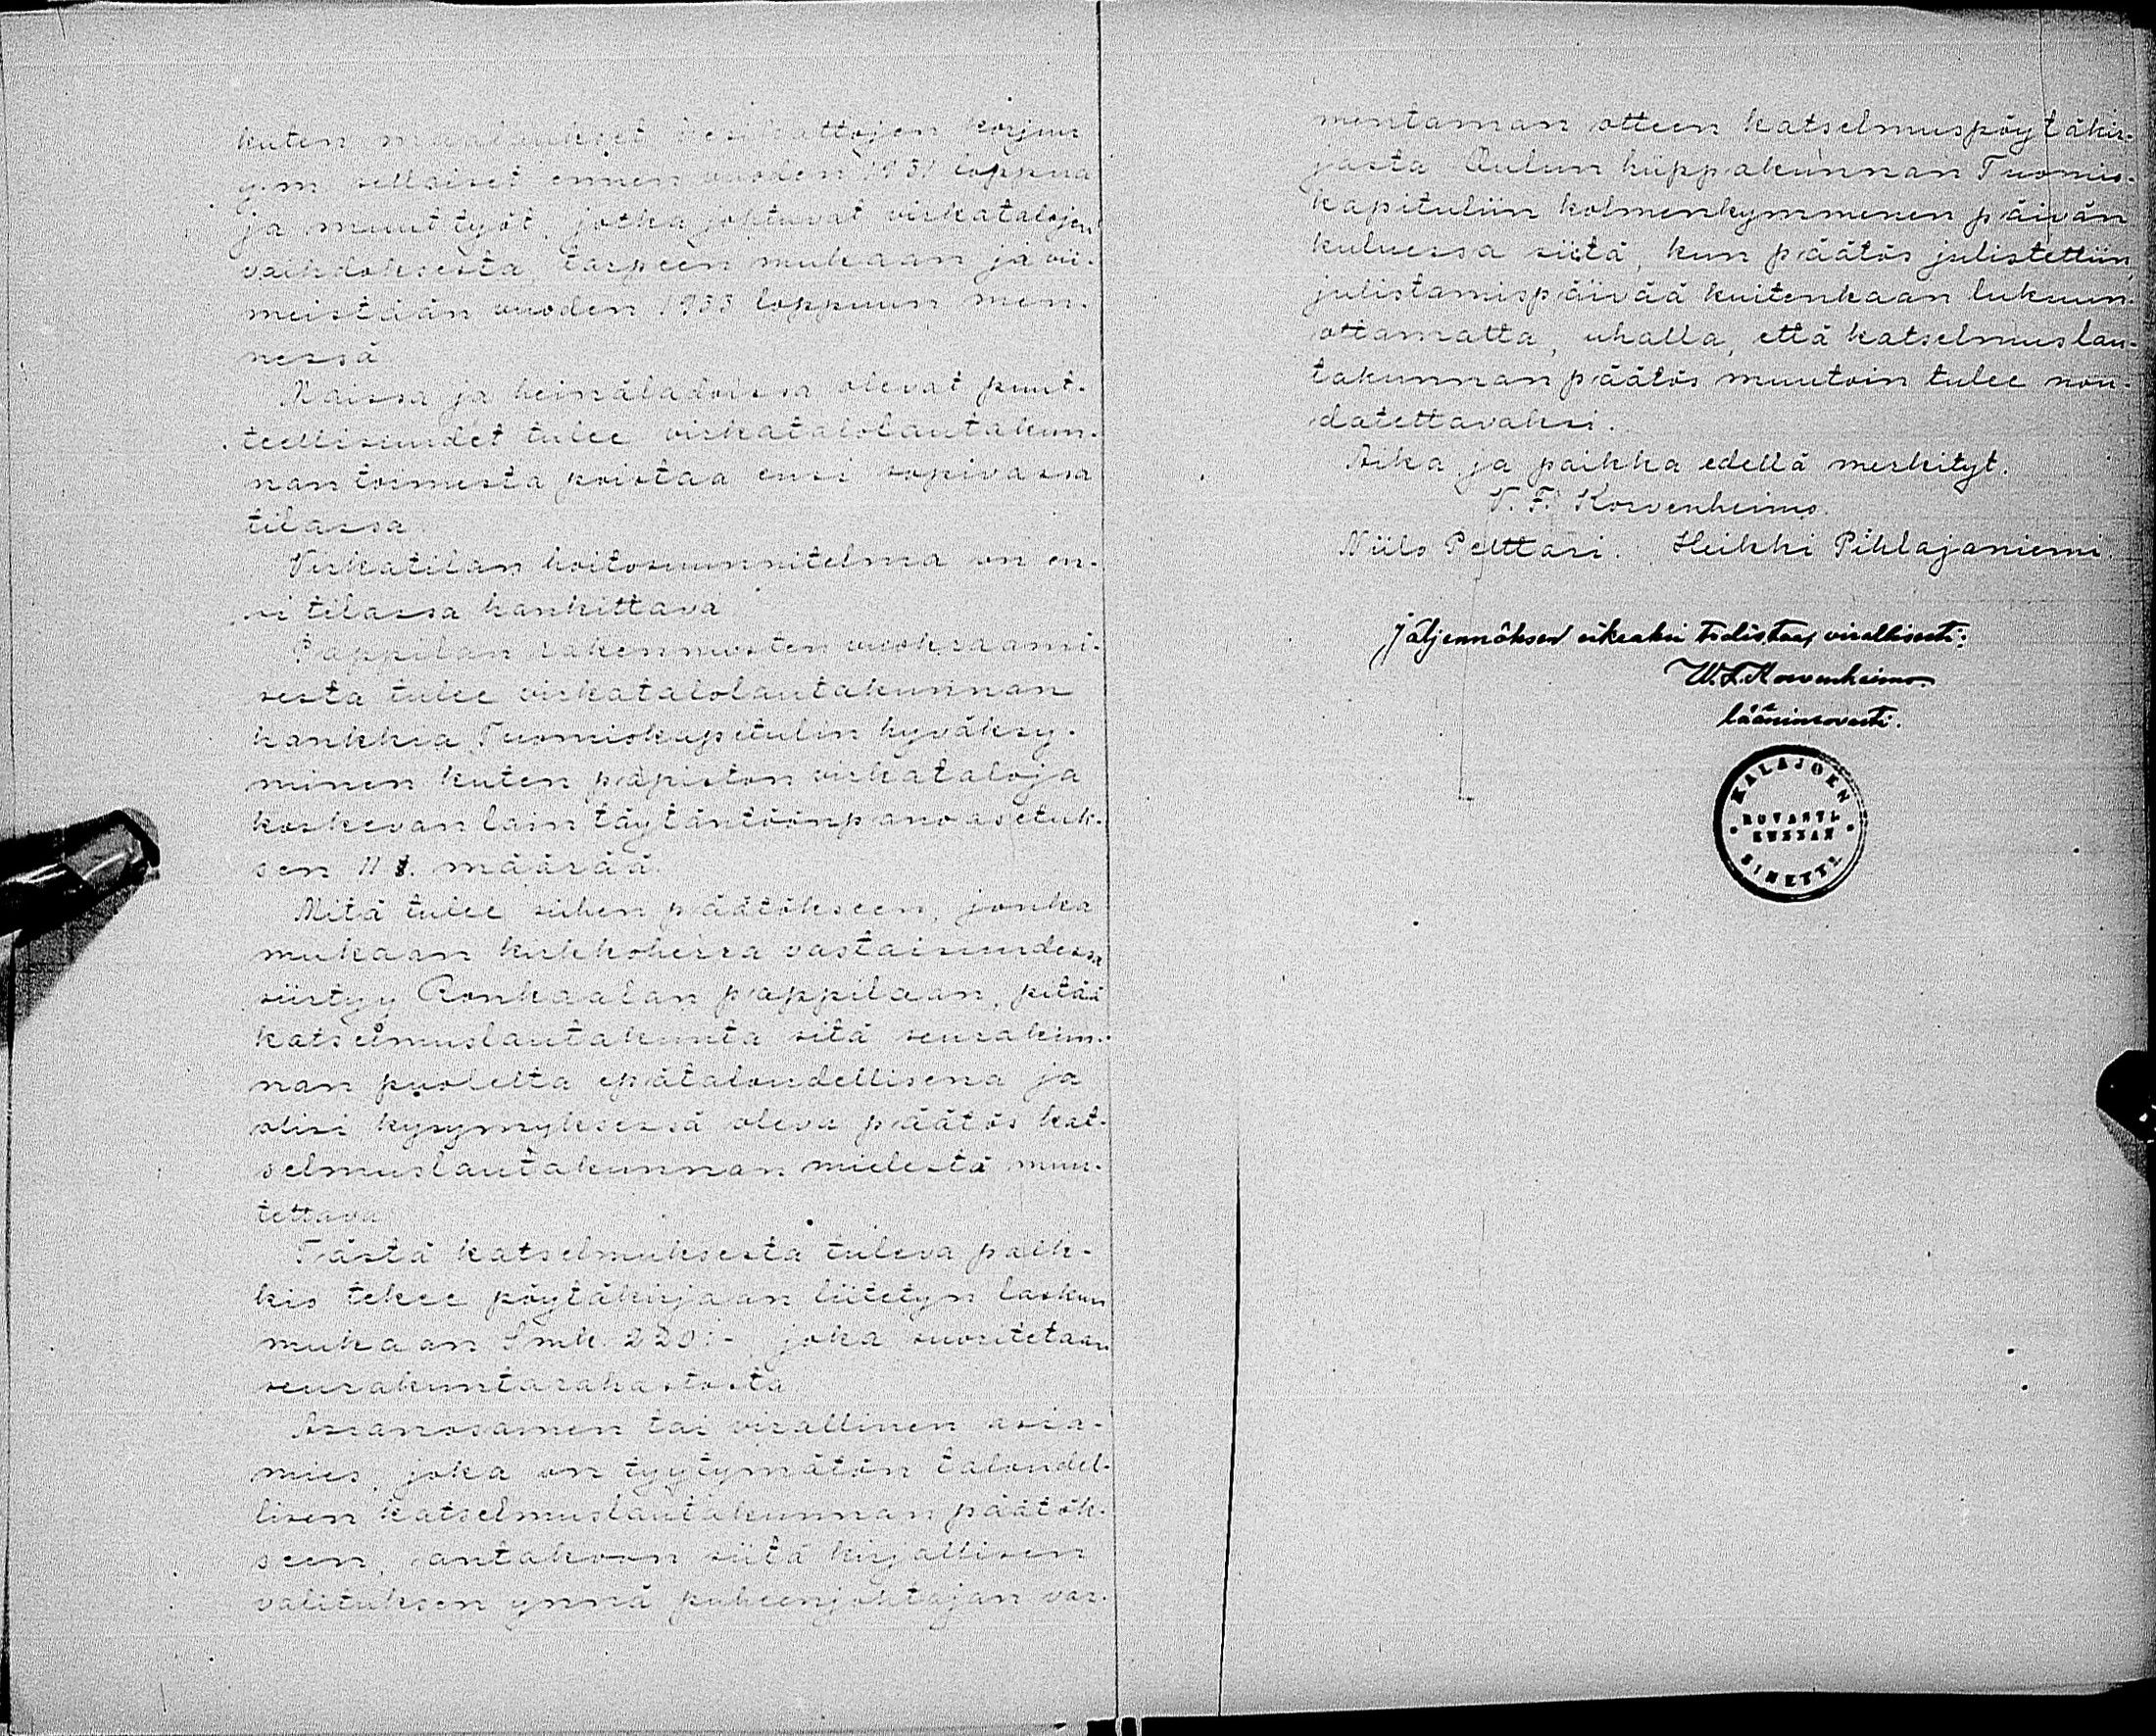 kuten maalaukset kesikattojen korjuu
y.m. sellaiset ennen vuoden 1931 loppua
ja muut työt, jotka johtuvat virkatalojen
vaihdoksesta, tarpeen mukaan ja vii-
meistään vuoden 1933 loppuun men-
nessä.
Maissa ja heinäladoissa olevat puut-
teellisuudet tulee virkatalolautakun-
nan toimesta poistaa ensi sopivassa
tilassa.
Virkatilan hoitosuunnitelma on en-
si tilassa hankittava.
Pappilan rakennusten vuokraami-
sesta tulee virkatalolautakunnan
hankkia Tuomiokapitulin hyväksy-
minen kuten papiston virkataloja
koskevan lain täytäntöönpanoasetuk-
sen 11 §. määrää.
Mitä tulee siihen päätökseen, jonka
mukaan kirkkoherra vastaisuudessa
siirtyy Ronkaalan pappilaan, pitää
katselmuslautakunta sitä seurakun-
nan puolelta epätaloudellisena ja
olisi kysymyksessä oleva päätös kat-
selmuslautakunnan mielestä muu-
tettava.
Tästä katselmuksesta tuleva palk-
kio tekee pöytäkirjaan liitetyn laskun
mukaan Smk. 220:- joka suoritetaan
seurakuntarahastosta.
Asianosainen tai virallinen asia-
mies, joka on tyytymätön taloudel-
lisen katselmuslautakunnan päätök-
seen, antakoon siitä kirjallisen
valituksen ynnä puheenjohtajan var-
mentaman otteen katselmuspöytäkir-
jasta Oulun hiippakunnan Tuomio-
kapituliin kolmenkymmenen päivän
kuluessa siitä, kun päätös julistettiin,
julistamispäivää kuitenkaan lukuun-
ottamatta, uhalla, että katselmuslau-
takunnan päätös muutoin tulee nou-
datettavaksi.
Aika ja paikka edellä merkityt.
V. F. Korvenheimo.
Niilo Pelttari. Heikki Pihlajaniemi.
Jäljennöksen oikeaksi todistaa, virallisesti:
W. F. Korvenheimo.
lääninrovasti.
KALAJOEN
ROVASTI-
KUNNAN
SINETTI